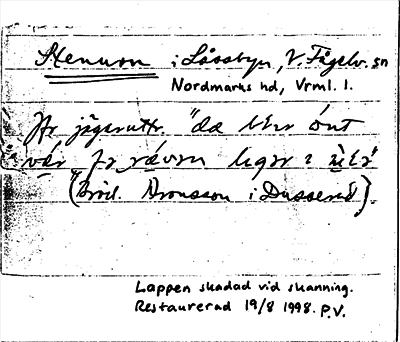 Stenurn i Låssbyn, V. Fågelv. sn
Nordmarks hd, Vrml. l.
Ar jägaruttr. "da blir ónt
vár fr räven ligger i
(Bröd. Aronsson i Dusserud).
Lappen skadad vid skanning.
Restaurerad 19/8 1998. P.V.